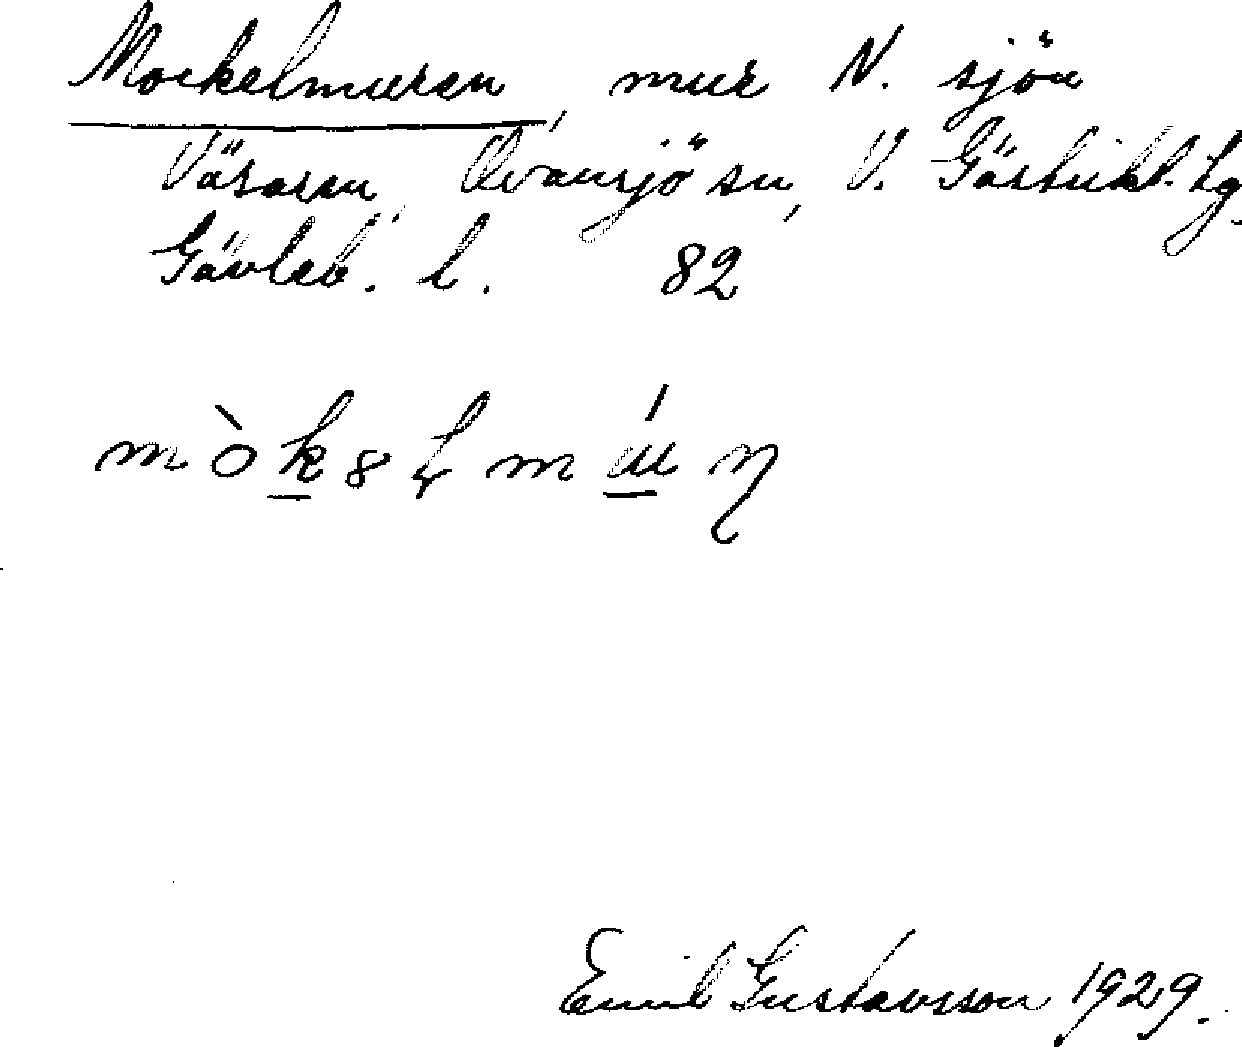 Mockelmuren, mur N. sjön
Väraren, Ovansjö sn, V. Gästrikl. tg
Gävleb. l. 82
mòk̲əɫmú̲ŋ
Emil Gustavsson 1929.